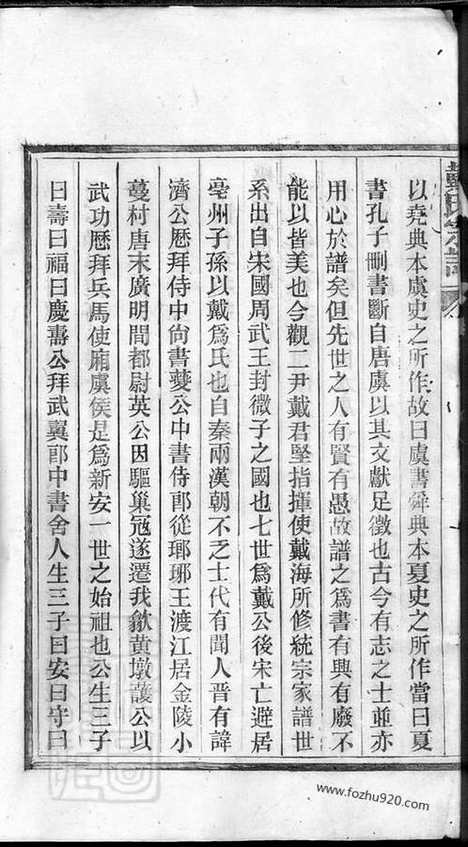 以堯典本虞史之所作故曰虞書舜典本夏史之所作當曰夏
書孔子刪書斷自唐虞以其文獻足徵也古今有志之士並亦
用心於譜矣但先世之人有賢有愚故譜之爲書有興有廢不
能以皆美也今觀二尹戴君堅指揮使戴海所修統宗家譜世
系出自宋國周武王封微子之國也七世爲戴公後宋亡避居
亳州子孫以戴爲氏也自秦兩漢朝不乏士代有聞人晋有諱
濟公歷拜侍中尙書夔公中書侍郎從瑯琊王渡江居金陵小
蔓村唐末廣明間都尉英公因驅巢寇遂遷我歙黃墩護公以
武功歷拜兵馬使廂虞侯是爲新安一世之始祖也公生三子
曰壽曰福曰慶壽公拜武翼郎中書舍人生三子曰安曰守曰
www.fozhu920.com